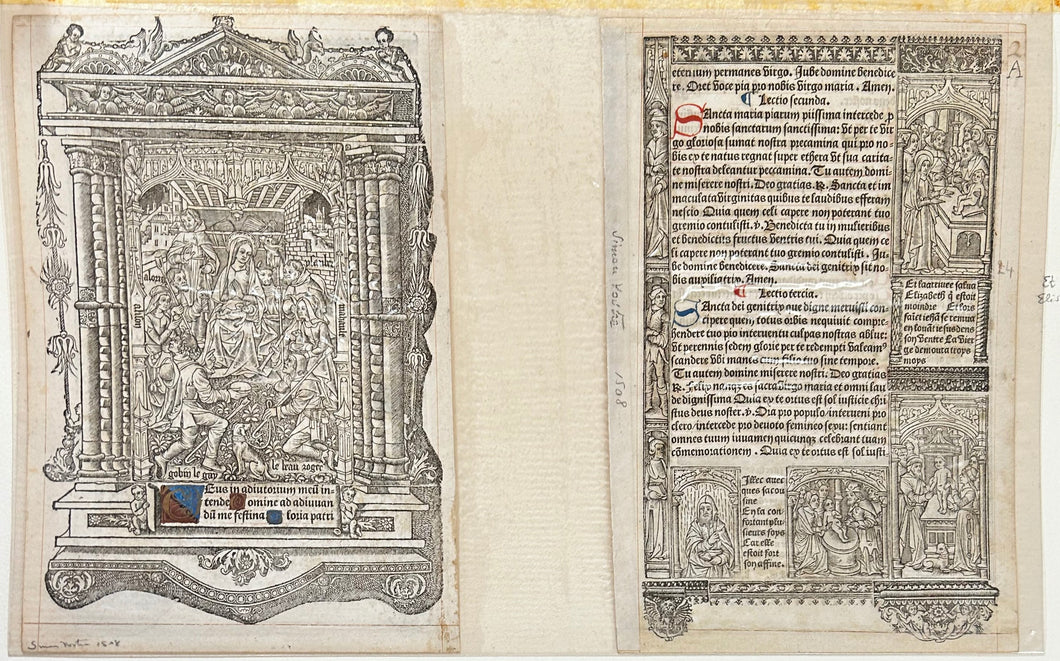 alori
mahault
gobin le gay
le beau roger
Deus in adiutorium meū in-
tende Domine ad adiuvan
dū me festina Gloria patri
Simon Vostre 1508
Simon Vostre 1508
eternum permanes virgo. Jube domine benedice
re. Oret voce pia pro nobis virgo maria. Amen.
¶ Lectio secunda.
Sancta maria piarum piissima intercede p
nobis sanctarum sanctissima: vt per te vir
go gloriosa sumat nostra precamina qui pro no-
bis ex te natus regnat super ethera vt sua carita-
te nostra deleantur peccamina. Tu autem domi
ne miserere nostri. Deo gratias. R. Sancta et im
maculata virginitas quibus te laudibus efferam
nescio Quia quem celi capere non poterant tuo
gremio contulisti. v. Benedicta tu in mulieribus
et benedictus fructus ventris tui. Quia quem ce
li capere non poterant tuo gremio contulisti. Ju-
be domine benedicere. Sancta dei genitrix sit no-
bis auxiliatrix. Amen.
¶ Lectio tercia.
Sancta dei genitrix que digne meruisti con-
cipere quem totus orbis nequiuit compre
hendere tuo pio interuentu culpas nostras ablue:
vt perennis sedem glorie per te redempti valeam⁹
scandere vbi manes cum filio tuo sine tempore.
Tu autem domine miserere nostri. Deo gratias
R. Felix nanq; es sacra virgo maria et omni lau
de dignissima Quia ex te ortus est sol iusticie chri
stus deus noster. v. Ora pro populo interueni pro
clero intercede pro deuoto femineo sexu: sentiant
omnes tuum iuuamen quicunq; celebrant tuam
cōmemorationem. Quia ex te ortus est sol iusti
2
A
24
Et larriuee salua
Elizabeth q̄ estoit
moindre Et fors
saīct iehā se remua
en louāt iesus dens
son ventre La vier
ge demoura troys
moys
Et
Illec auec
ques sa cou
sine
En la con
fortant plu-
sieurs foys
Car elle
estoit fort
son affine.